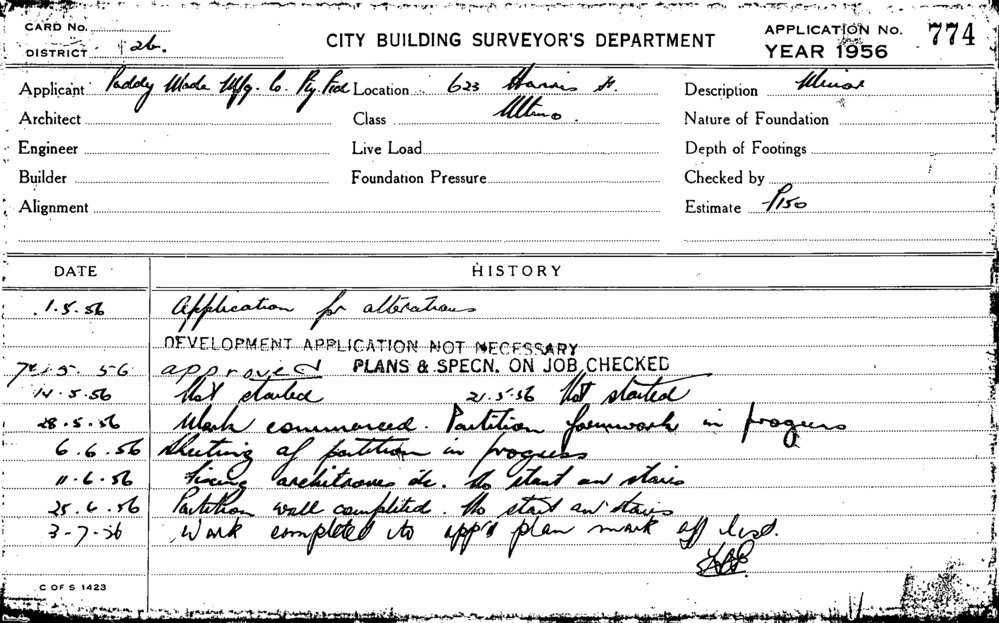 CARD No.
DISTRICT 26.
CITY BUILDING SURVEYOR'S DEPARTMENT
APPLICATION No. 774
YEAR 1956
Applicant Paddy Made Mfg. Co. Pty. Ltd Location 623 Harris St. Description Minor
Architect Class Ultimo. Nature of Foundation
Engineer Live Load Depth of Footings
Builder Foundation Pressure Checked by
Alignment Estimate £150
DATE HISTORY
1.5.56 Application for alterations
DEVELOPMENT APPLICATION NOT NECESSARY
5 56 approved PLANS & SPECN. ON JOB CHECKED
14.5.56 Not started 21.5.56 Not started
28.5.56 Work commenced. Partition formwork in progress
6.6.56 Sheeting of partition in progress
11.6.56 Fixing architraves etc. No start on stairs
25.6.56 Partition wall completed. No start on stairs
3-7-56 Work completed to app'd plan mark off list.
C OF S 1423